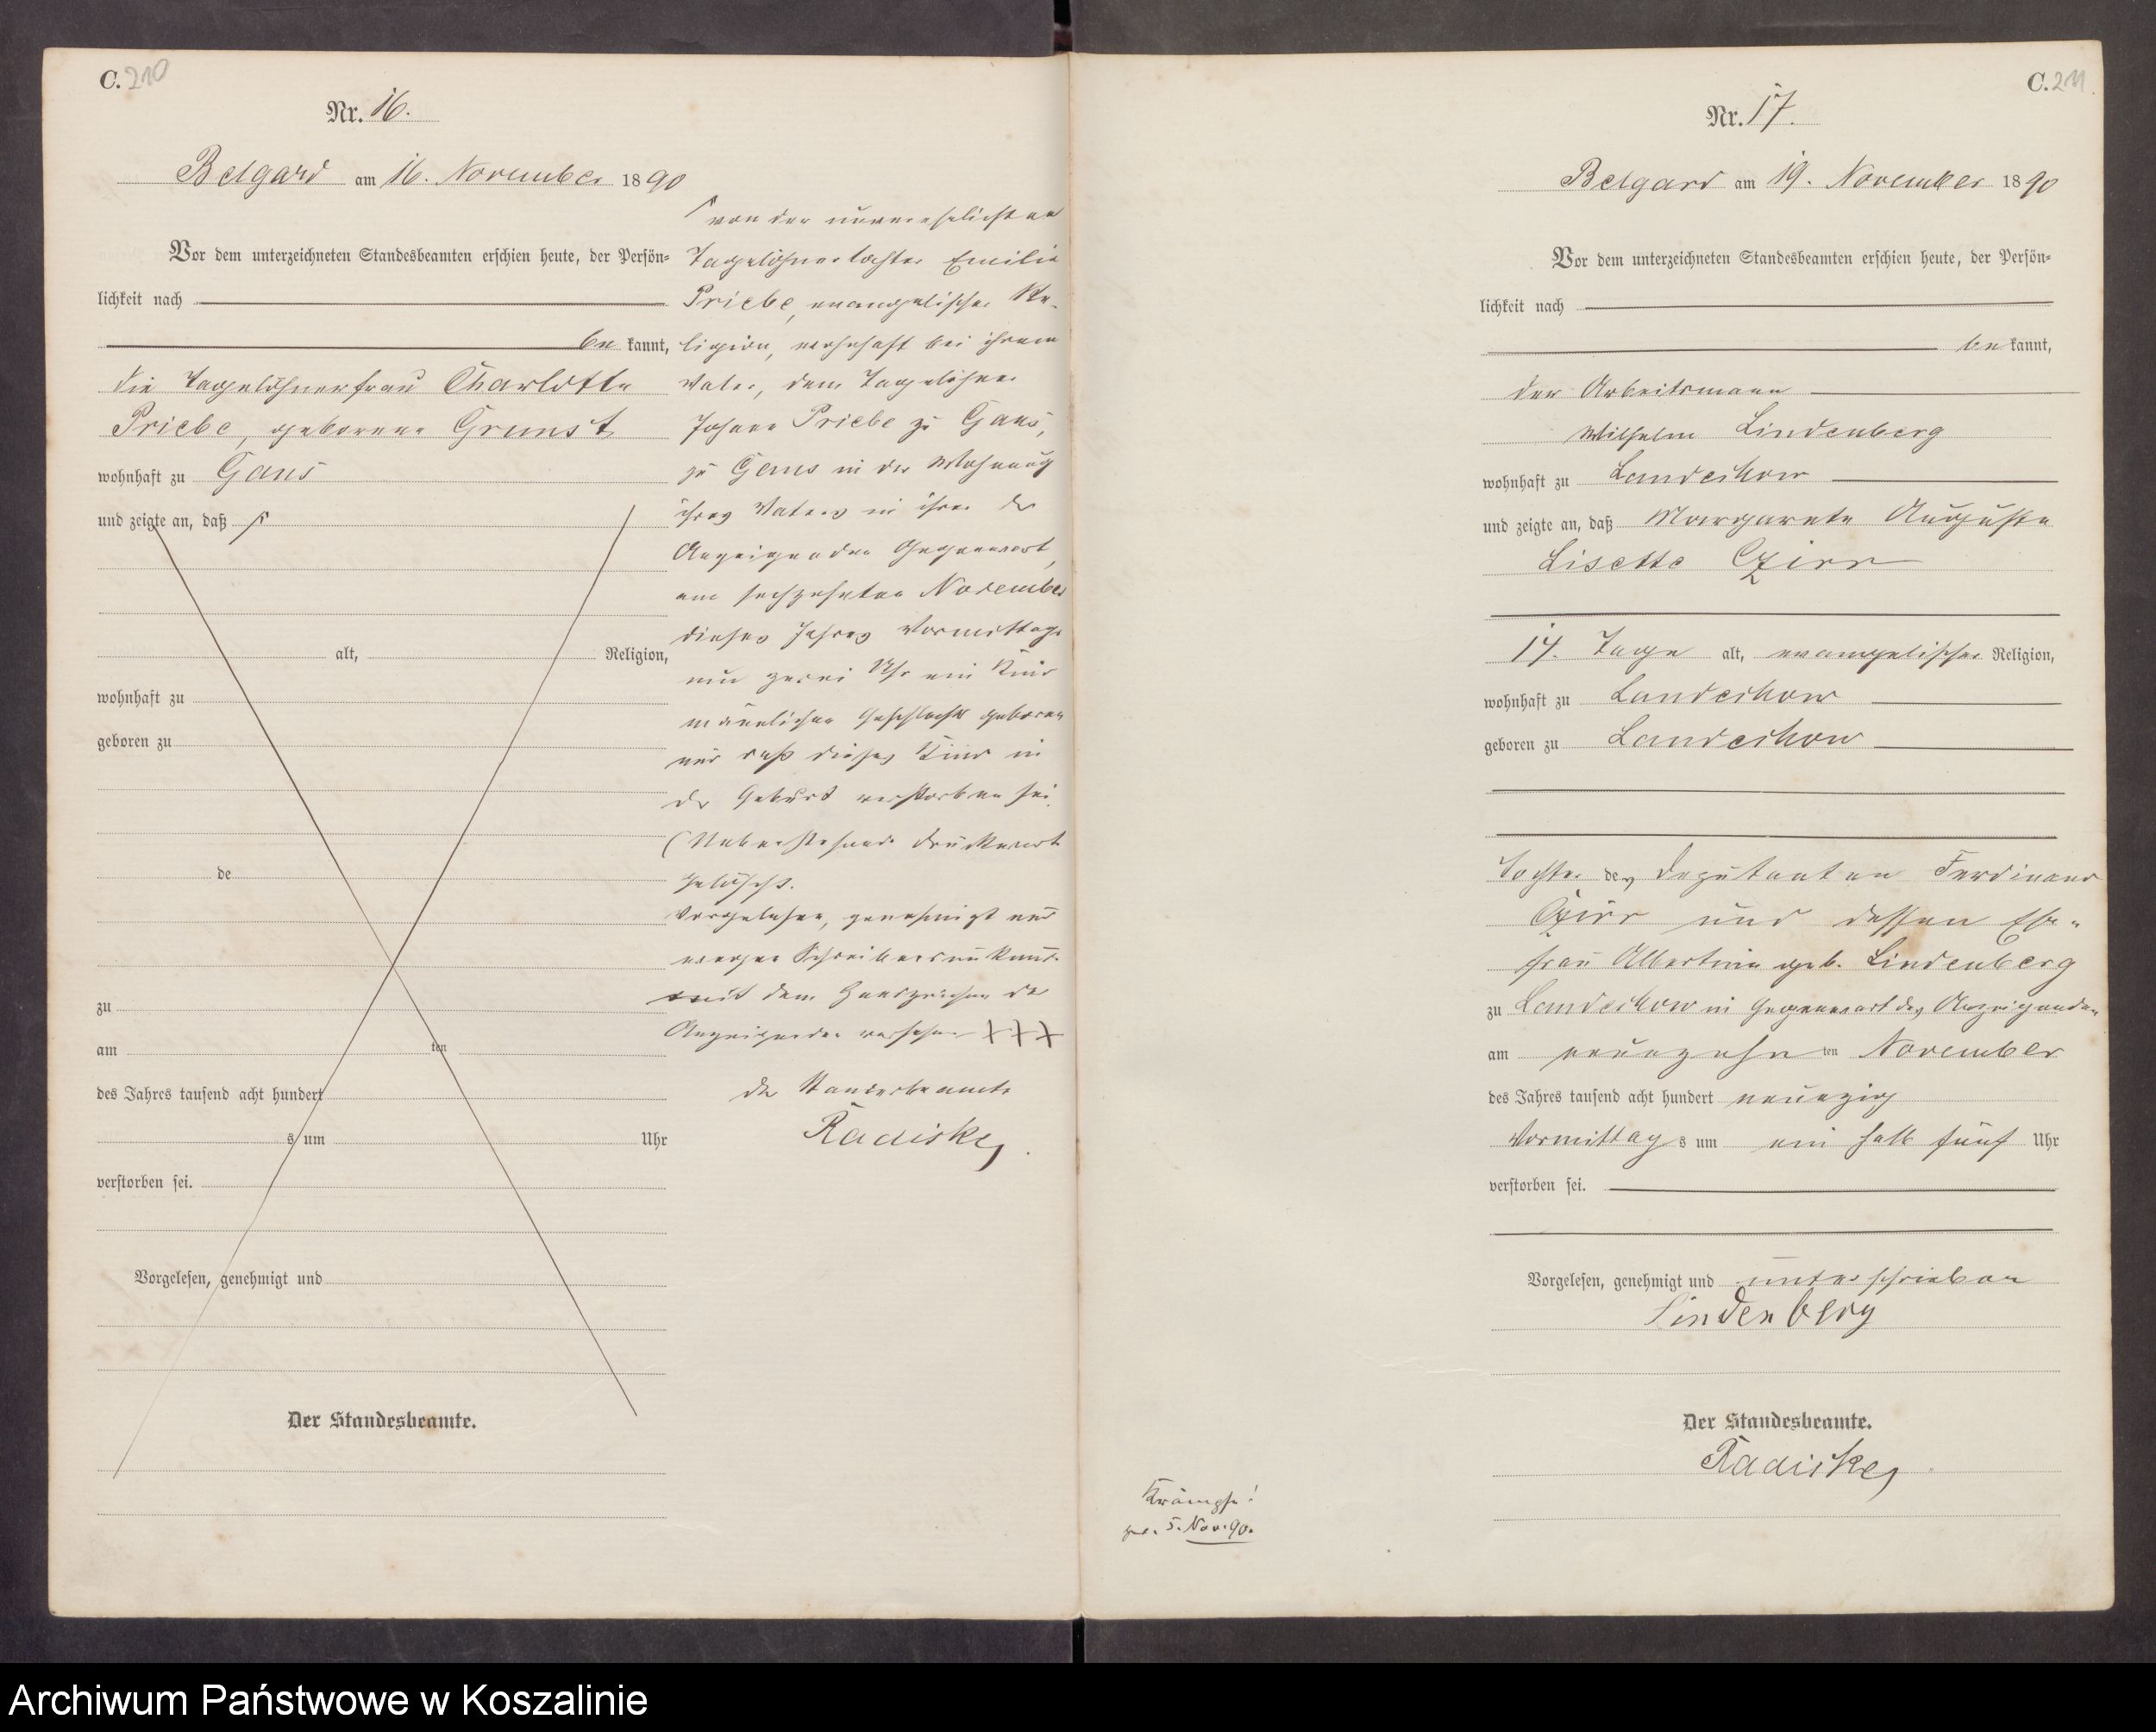 C. 210
Nr. 16.
Belgard am 16. November 1890
Vor dem unterzeichneten Standesbeamten erschien heute, der Persön-
lichkeit nach
be kannt,
die Tagelöhnerfrau Charlotte
Priebe, geborene Grunst
wohnhaft zu Gans
und zeigte an, daß
alt, Religion,
wohnhaft zu
geboren zu
de
zu
am ten
des Jahres tausend acht hundert
s um Uhr
verstorben sei.
Vorgelesen, genehmigt und
Der Standesbeamte.
von der unverehelichten
Tagelöhnertochter Emilie
Priebe, evangelischer Re-
ligion, wohnhaft bei ihrem
Vater, dem Tagelöhner
Johann Priebe zu Gans,
zu Gans in der Wohnung
ihres Vaters in ihrer der
Anzeigenden Gegenwart,
am sechszehnten November
dieses Jahres Vormittags
um zwei Uhr ein Kind
männlichen Geschlechts geboren
und daß dieses Kind in
der Geburt verstorben sei.
(Nebenstehende Druckworte
gelöscht.
Vorgelesen, genehmigt und
wegen Schreibensunkunde
mit dem Handzeichen der
Anzeigenden versehen XXX
Der Standesbeamte
Radiske
C. 211.
Nr. 17.
Belgard am 19. November 1890
Vor dem unterzeichneten Standesbeamten erschien heute, der Persön-
lichkeit nach
be kannt,
der Arbeitsmann
Wilhelm Lindenberg
wohnhaft zu Landechow
und zeigte an, daß Margarete Auguste
Lisette Czirr
14. Tage alt, evangelischer Religion,
wohnhaft zu Landechow
geboren zu Landechow
Tochter des Deputanten Ferdinand
Czirr und dessen Ehe-
frau Albertine geb. Lindenberg
zu Landechow in Gegenwart des Anzeigenden
am neunzehn ten November
des Jahres tausend acht hundert neunzig
Vormittag s um ein halb fünf Uhr
verstorben sei.
Vorgelesen, genehmigt und unterschrieben
Lindenberg
Der Standesbeamte.
Radiske
Krämpfe!
geb. 5. Nov. 90.
Archiwum Państwowe w Koszalinie